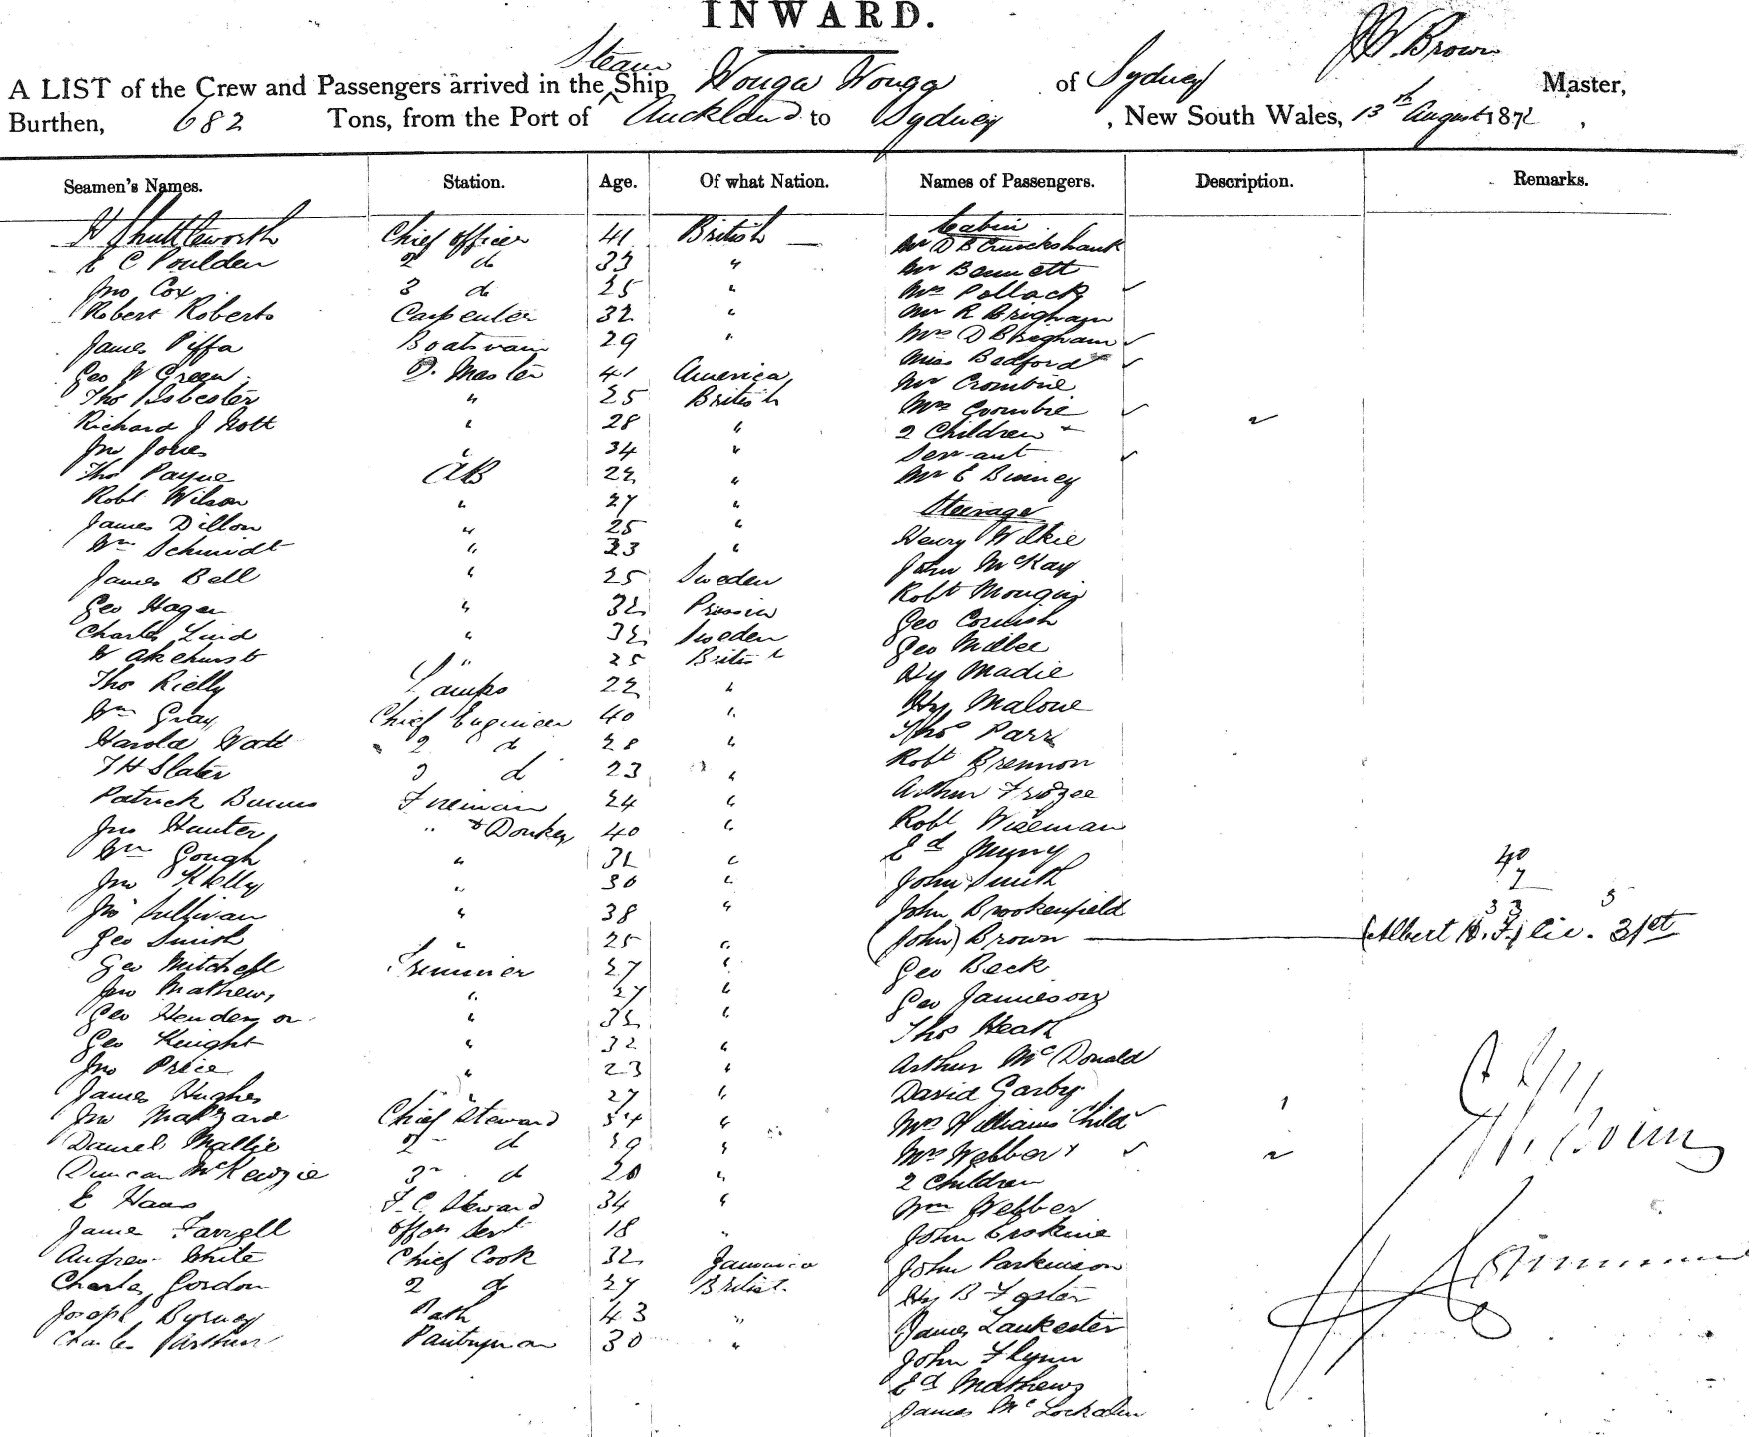 INWARD.
J W. Brown
Steam
A LIST of the Crew and Passengers arrived in the Ship Wonga Wonga of Sydney Master,
Burthen, 682 Tons, from the Port of Auckland to Sydney, New South Wales, 13th August 1872,
Seamen's Names. Station. Age. Of what Nation. Names of Passengers. Description. Remarks.
Cabin
H Shuttleworth Chief Officer 41 British Mr D B Cruickshank
E C Poulden 2 do 33 " Mr Bennett
Jno Cox 3 do 25 " Mrs Pollack
Robert Roberts Carpenter 32 " Mr R Brigham
James Piffa Boatswain 29 " Mrs D Brigham
Geo W Green Q. Master 41 America Miss Bedford
Tho Isbester " 25 British Mr Crombie
Richard J Nott " 28 " Mrs Crombie
Jno Jones " 34 " 2 Children
Servant
Tho Payne AB 22 " Mr E Binney
Robt Wilson " 27 " Steerage
James Dillon " 25 " Henry Wilkie
Wm Schmidt " 23 " John McKay
James Bell " 25 Sweden Robt
Geo Hagen " 32 Prussia Geo Cornish
Charles Lind " 32 Sweden Geo
W Akehurst " 25 British Hy Madie
Tho Rielly Lamps 22 " Hy Malone
Wm Gray Chief Engineer 40 " Thos Parr
Harold Watt 2 d 28 " Robt Brennon
T H Slater 3 d 23 " Arthur
Patrick Burns Fireman 24 " Robt Wiseman
Jno Hunter " & Donkey 40 " Ed
Wm Gough " 32 " John Smith
Jno Kelly " 30 " John Brookenfield
Jno Sullivan " 38 " (John) Brown (Albert H. F.) lic. 31st
Geo Smith " 25 " Geo Beck
Geo Mitchell Trimmer 27 " Geo Jamieson
Jno Mathews " 27 " Thos Heath
Geo Henderson " 32 " Arthur McDonald
Geo Knight " 32 " David Garby
Jno Price " 23 " Mrs Williams Child
James Hughes " 27 " Mrs Webber
Jno Chief Steward 34 " 2 Children
Daniel Mallie 2 d 19 " Wm Webber
Duncan McKenzie 3 d 20 " John Erskine
E Haas F. C. Steward 34 " John Parkinson
James Farrell Offrs Servt 18 " Hy B Foster
Andrew White Chief Cook 32 Jamaica James Lankester
Charles Gordon 2 d 27 British John Flynn
Joseph Byrney 43 " Ed Mathews
Charles Arthur Pantryman 30 " James McLochlin